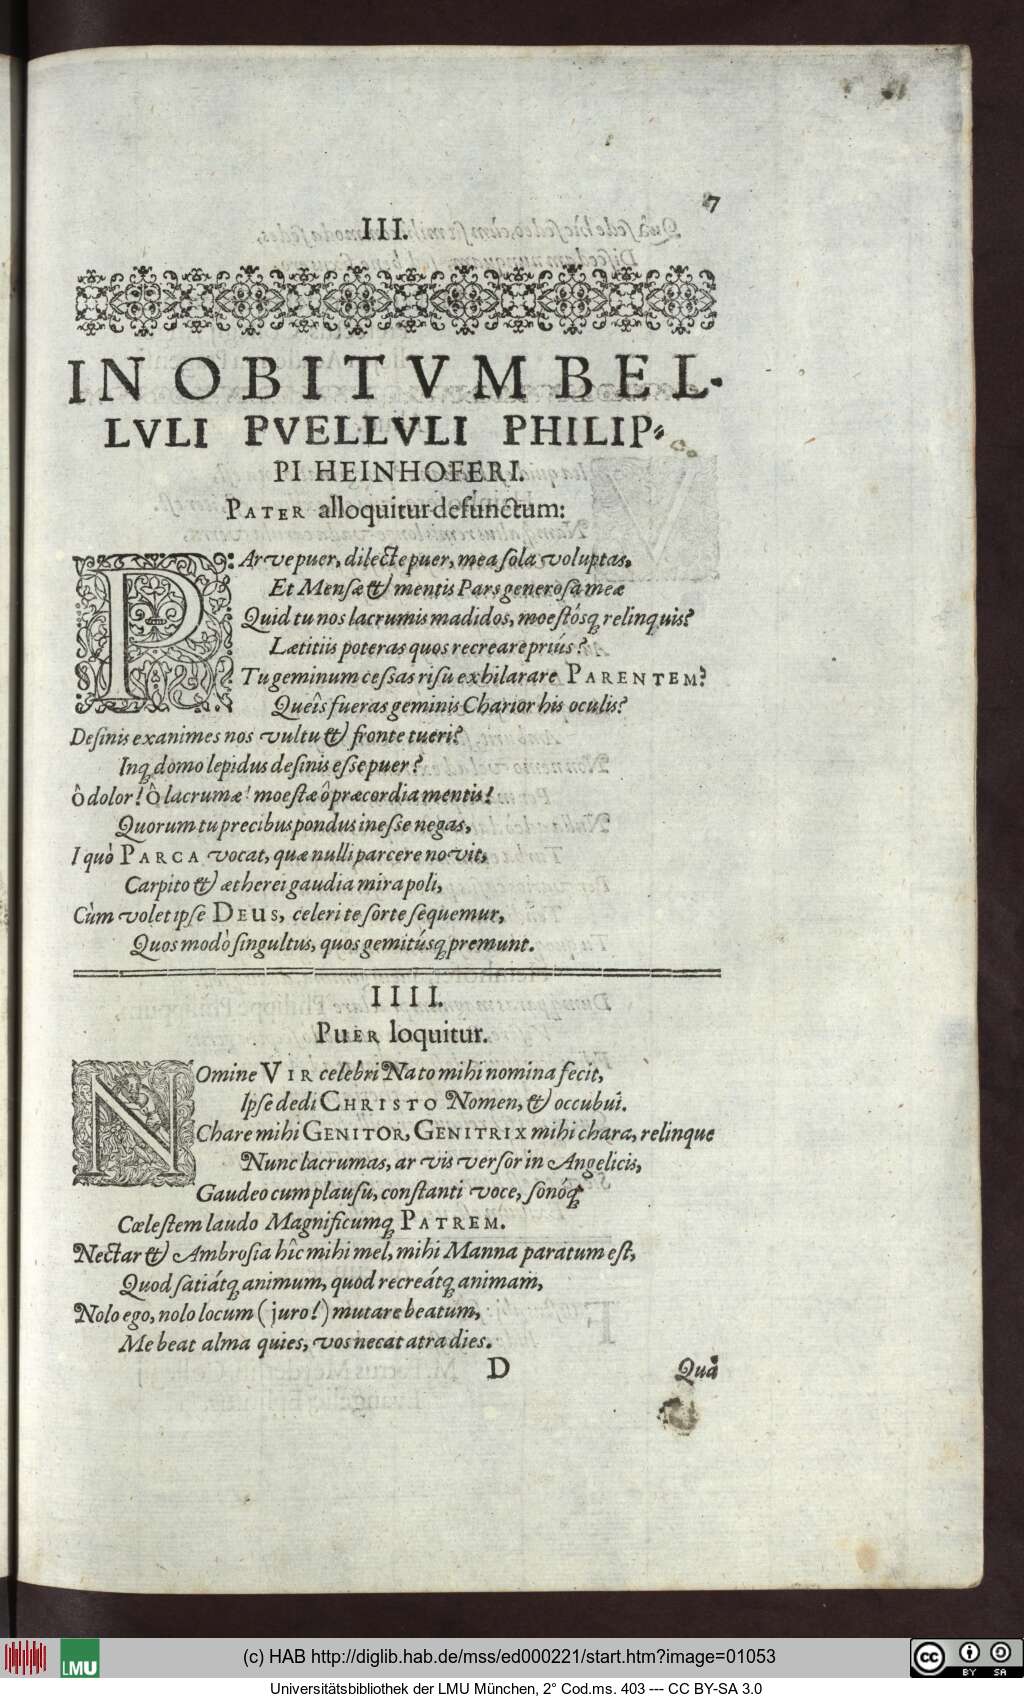 7
III.
IN OBITVM BEL-
LVLI PVELLVLI PHILIP-
PI HEINHOFERI.
PATER alloquitur defunctum:
PArve puer, dilecte puer, mea sola voluptas,
Et Mensæ & mentis Pars generosa meæ
Quid tu nos lacrumis madidos, moestósq; relinquis?
Lætitiis poteras quos recreare priús?
Tu geminum cessas risu exhilarare PARENTEM?
Queîs fueras geminis Charior his oculis?
Desinis exanimes nos vultu & fronte tueri?
Inq; domo lepidus desinis esse puer?
ô dolor! ô lacrumæ! moestæ ô præcordia mentis!
Quorum tu precibus pondus inesse negas,
I quò PARCA vocat, quæ nulli parcere novit,
Carpito & ætherei gaudia mira poli,
Cùm volet ipse DEUS, celeri te sorte sequemur,
Quos modò singultus, quos gemitúsq; premunt.
IIII.
PUER loquitur.
NOmine VIR celebri Nato mihi nomina fecit,
Ipse dedi CHRISTO Nomen, & occubui.
Chare mihi GENITOR, GENITRIX mihi chara, relinque
Nunc lacrumas, arvis versor in Angelicis,
Gaudeo cum plausu, constanti voce, sonóq;
Cœlestem laudo Magnificumq; PATREM.
Nectar & Ambrosia hîc mihi mel, mihi Manna paratum est,
Quod satiátq; animum, quod recreátq; animam,
Nolo ego, nolo locum (juro!) mutare beatum,
Me beat alma quies, vos necat atra dies.
D Quâ
LMU
(c) HAB http://diglib.hab.de/mss/ed000221/start.htm?image=01053
cc BY SA
Universitätsbibliothek der LMU München, 2° Cod.ms. 403 --- CC BY-SA 3.0